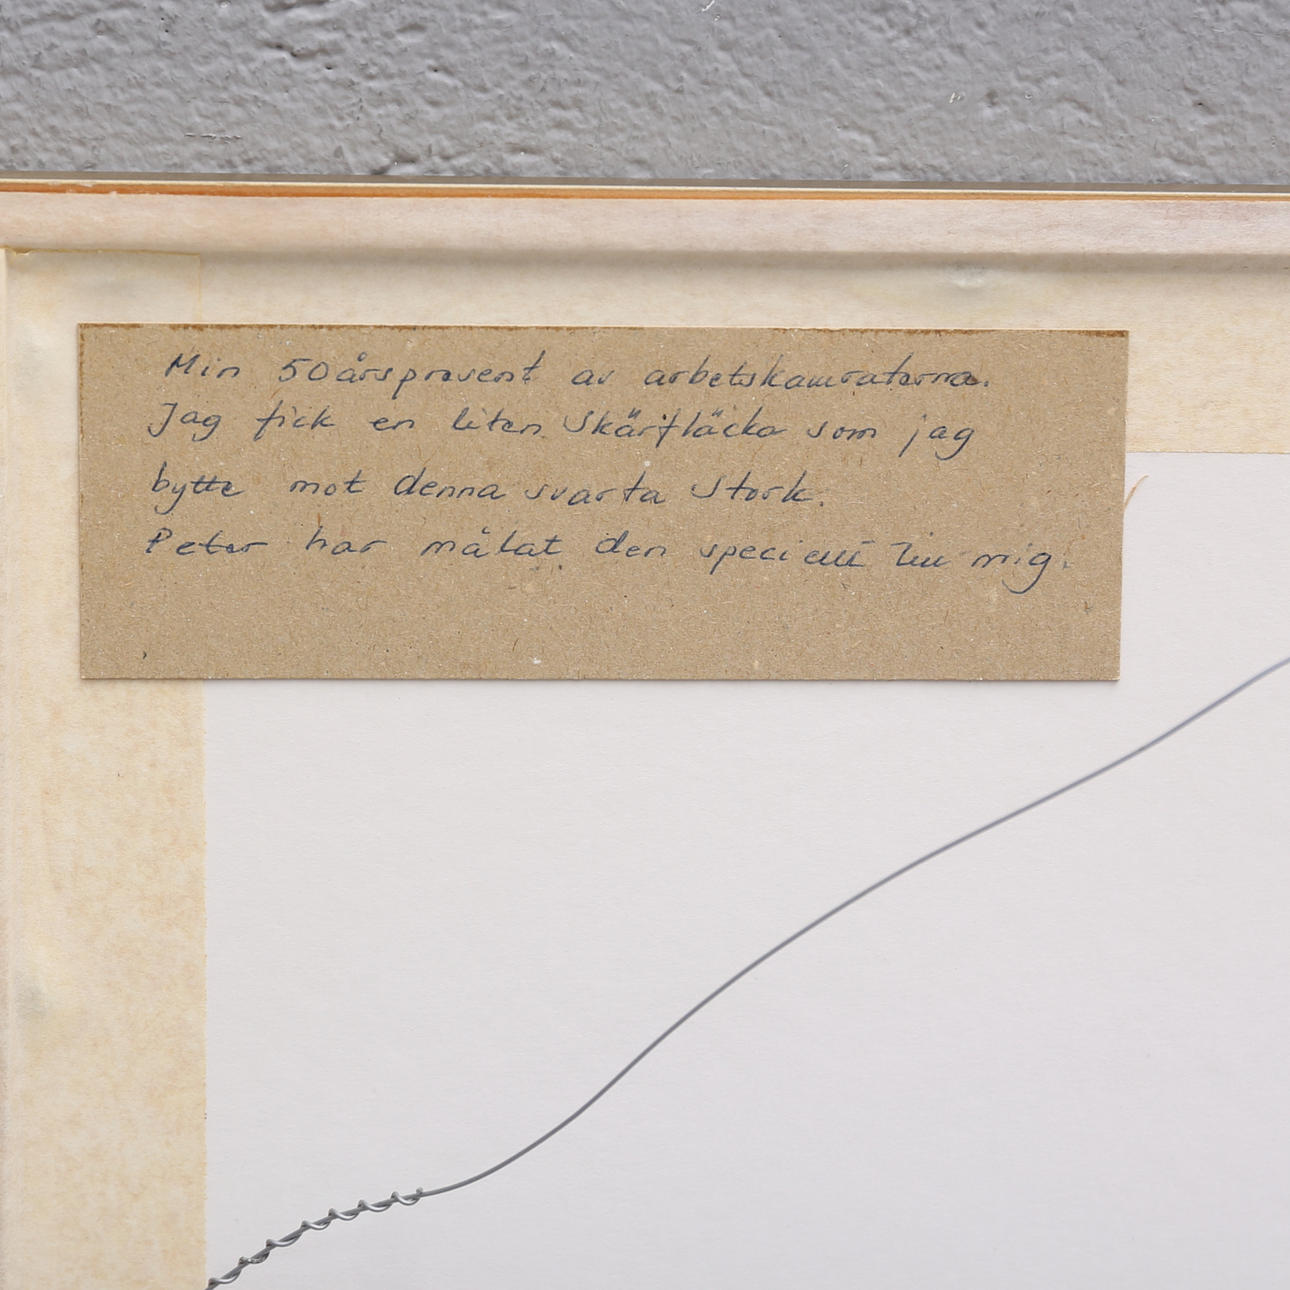 Min 50årspresent av arbetskamraterna.
Jag fick en liten Skärfläcka som jag
bytte mot denna svarta Stork.
Peter har målat den speciellt till mig.